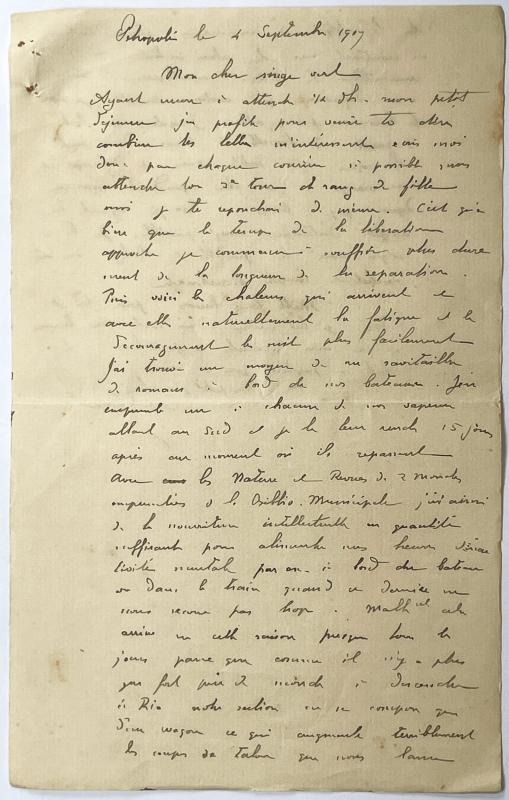 le 4 Septembre 1907
Mon cher
Ayant encore à attendre 1/2 h. mon petit
déjeuner j'en profite pour venir te dire
combien tes lettres m'intéressent écris moi
donc par chaque courrier si possible sans
attendre ton tour et
moi je te de même. C'est qu'à
que le temps de la libération
approche je commence à souffrir plus
ment de la longueur de la séparation.
Puis voici les chaleurs qui arrivent et
avec elles naturellement la fatigue et le
découragement plus facilement
J'ai trouvé un moyen de me ravitailler
de romans à bord de nos bateaux. J'en
emprunte un à chacun de nos vapeurs
allant au Sud et je le leur rends 15 jours
après au moment où ils repassent
Avec les Nature et Revues de 2 Mondes
empruntées à la Biblio. Municipale j'ai ainsi
de la nourriture intellectuelle en quantité
suffisante pour alimenter nos heures
tivité mentale à bord du bateau
ou dans le train quand ce dernier ne
nous secoue pas trop. Malh cela
arrive en cette saison presque tous les
jours parce que comme il n'y a plus
que fort peu de monde à descendre
à Rio notre section ne se compose que
d'un wagon ce qui augmente terriblement
les coups de que nous